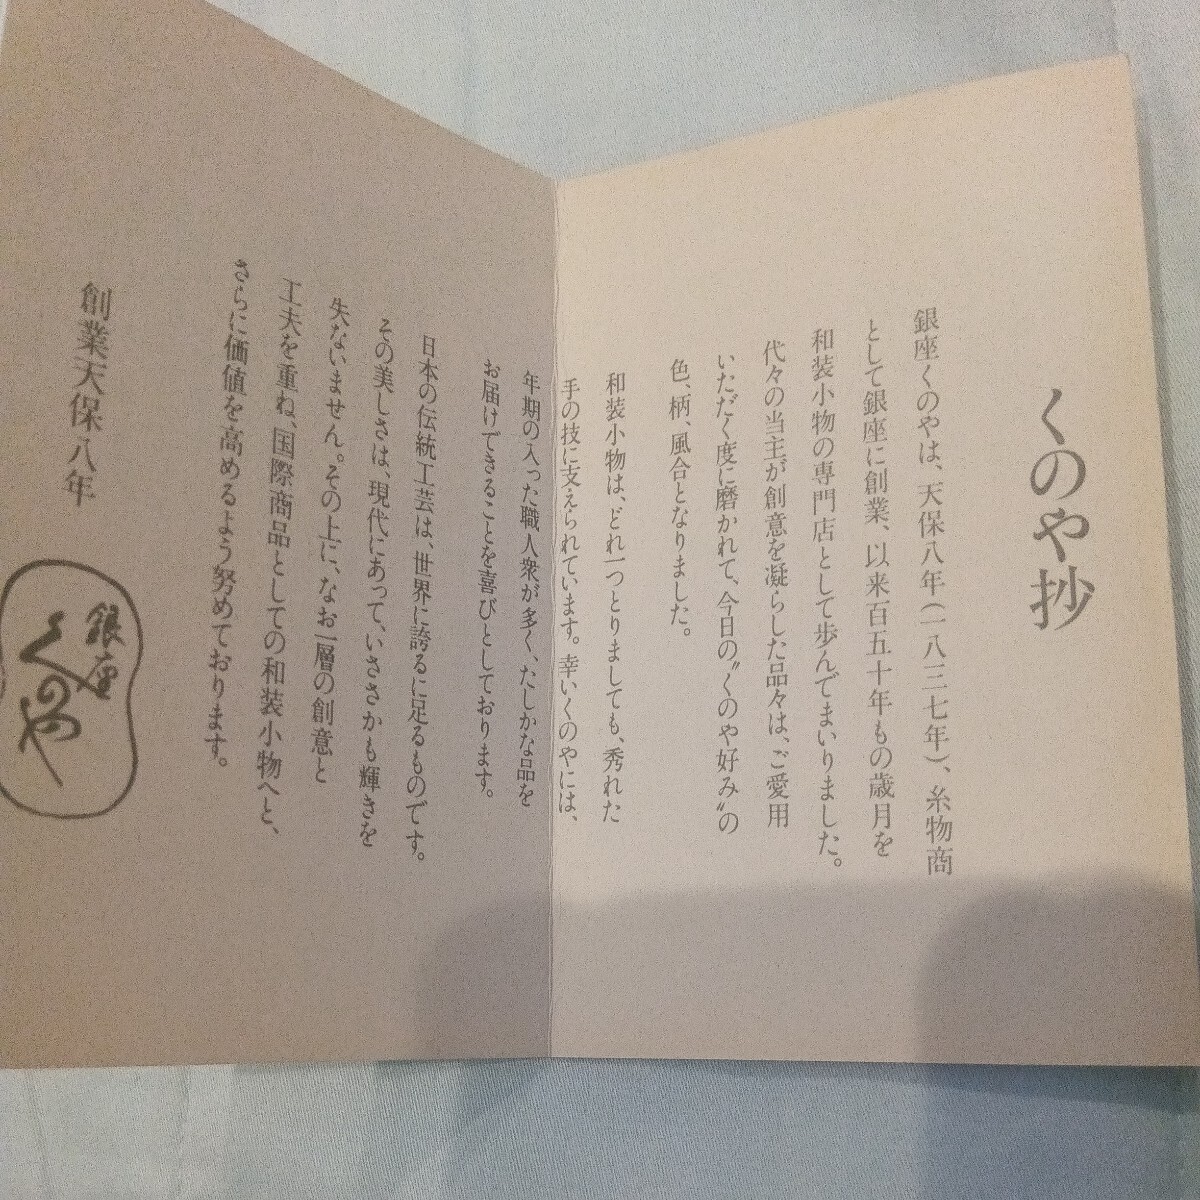 くのや抄
銀座くのやは、天保八年(一八三七年)、糸物商
として銀座に創業、以来百五十年もの歳月を
和装小物の専門店として歩んでまいりました。
代々の当主が創意を凝らした品々は、ご愛用
いただく度に磨かれて、今日の〝くのや好み〟の
色、柄、風合となりました。
和装小物は、どれ一つとりましても、秀れた
手の技に支えられています。幸いくのやには、
年期の入った職人衆が多く、たしかな品を
お届けできることを喜びとしております。
日本の伝統工芸は、世界に誇るに足るものです。
その美しさは、現代にあって、いささかも輝きを
失ないません。その上に、なお一層の創意と
工夫を重ね、国際商品としての和装小物へと、
さらに価値を高めるよう努めております。
創業天保八年
銀座
くのや